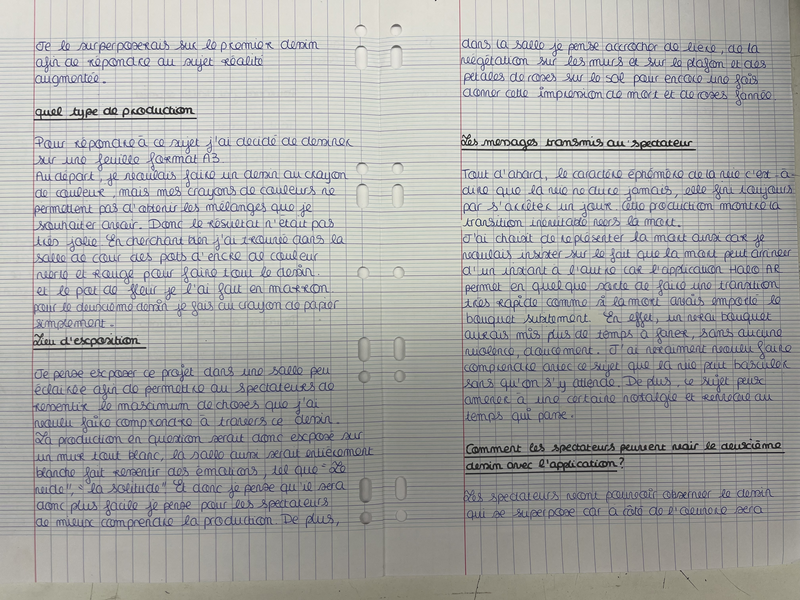 Je le surperposerais sur le premier dessin
afin de répondre au sujet réalité
augmentée.
quel type de production
Pour répondre à ce sujet j'ai décidé de dessiner
sur une feuille format A3.
Au départ, je voulais faire un dessin au crayon
de couleur, mais mes crayons de couleurs ne
permettent pas d'obtenir les mélanges que je
souhaiter avoir. Donc le résultat n'était pas
très jolie. En cherchant bien j'ai trouvée dans la
salle de cour des pots d'encre de couleur
verte et rouge pour faire tout le dessin.
et le pot de fleur je l'ai fait en marron
pour le deuxième dessin je fais au crayon de papier
simplement.
Lieu d'exposition
Je pense exposer ce projet dans une salle peu
éclairée afin de permettre au spectateurs de
ressentir le maximum de choses que j'ai
voulu faire comprendre à travers ce dessin.
La production en question serait donc exposé sur
un mur tout blanc, la salle aussi serait entièrement
blanche fait ressentir des émotions, tel que "Le
vide", "la solitude" Et donc je pense qu'il sera
donc plus facile je pense pour les spectateurs
de mieux comprendre la production. De plus,
dans la salle je pense accrocher de liere, de la
végétation sur les murs et sur le plafon et des
pétales de roses sur le sol pour encore une fois
donner cette impression de mort et de roses fannée.
Les messages transmis au spectateur
Tout d'abord, le caractère éphémère de la vie c'est-à-
dire que la vie ne dure jamais, elle fini toujours
par s'arrêter un jour cette production montre la
transition inévitable vers la mort.
J'ai choisit de représenter la mort ainsi car je
voulais insister sur le fait que la mort peut arriver
d'un instant à l'autre car l'application Halo AR
permet en quelque sorte de faire une transition
très rapide comme si la mort avais emporté le
bouquet subitement. En effet, un vrai bouquet
aurais mis plus de temps à faner, sans aucune
violence, doucement. J'ai vraiment voulu faire
comprendre avec ce sujet que la vie peut basculer
sans qu'on s'y attende. De plus, ce sujet peux
amener à une certaine nostalgie et renvoie au
temps qui passe.
Comment les spectateurs peuvent voir le deuxième
dessin avec l'application ?
Les spectateurs vont pouvoir observer le dessin
qui se superpose car à côté de l'oeuvre sera